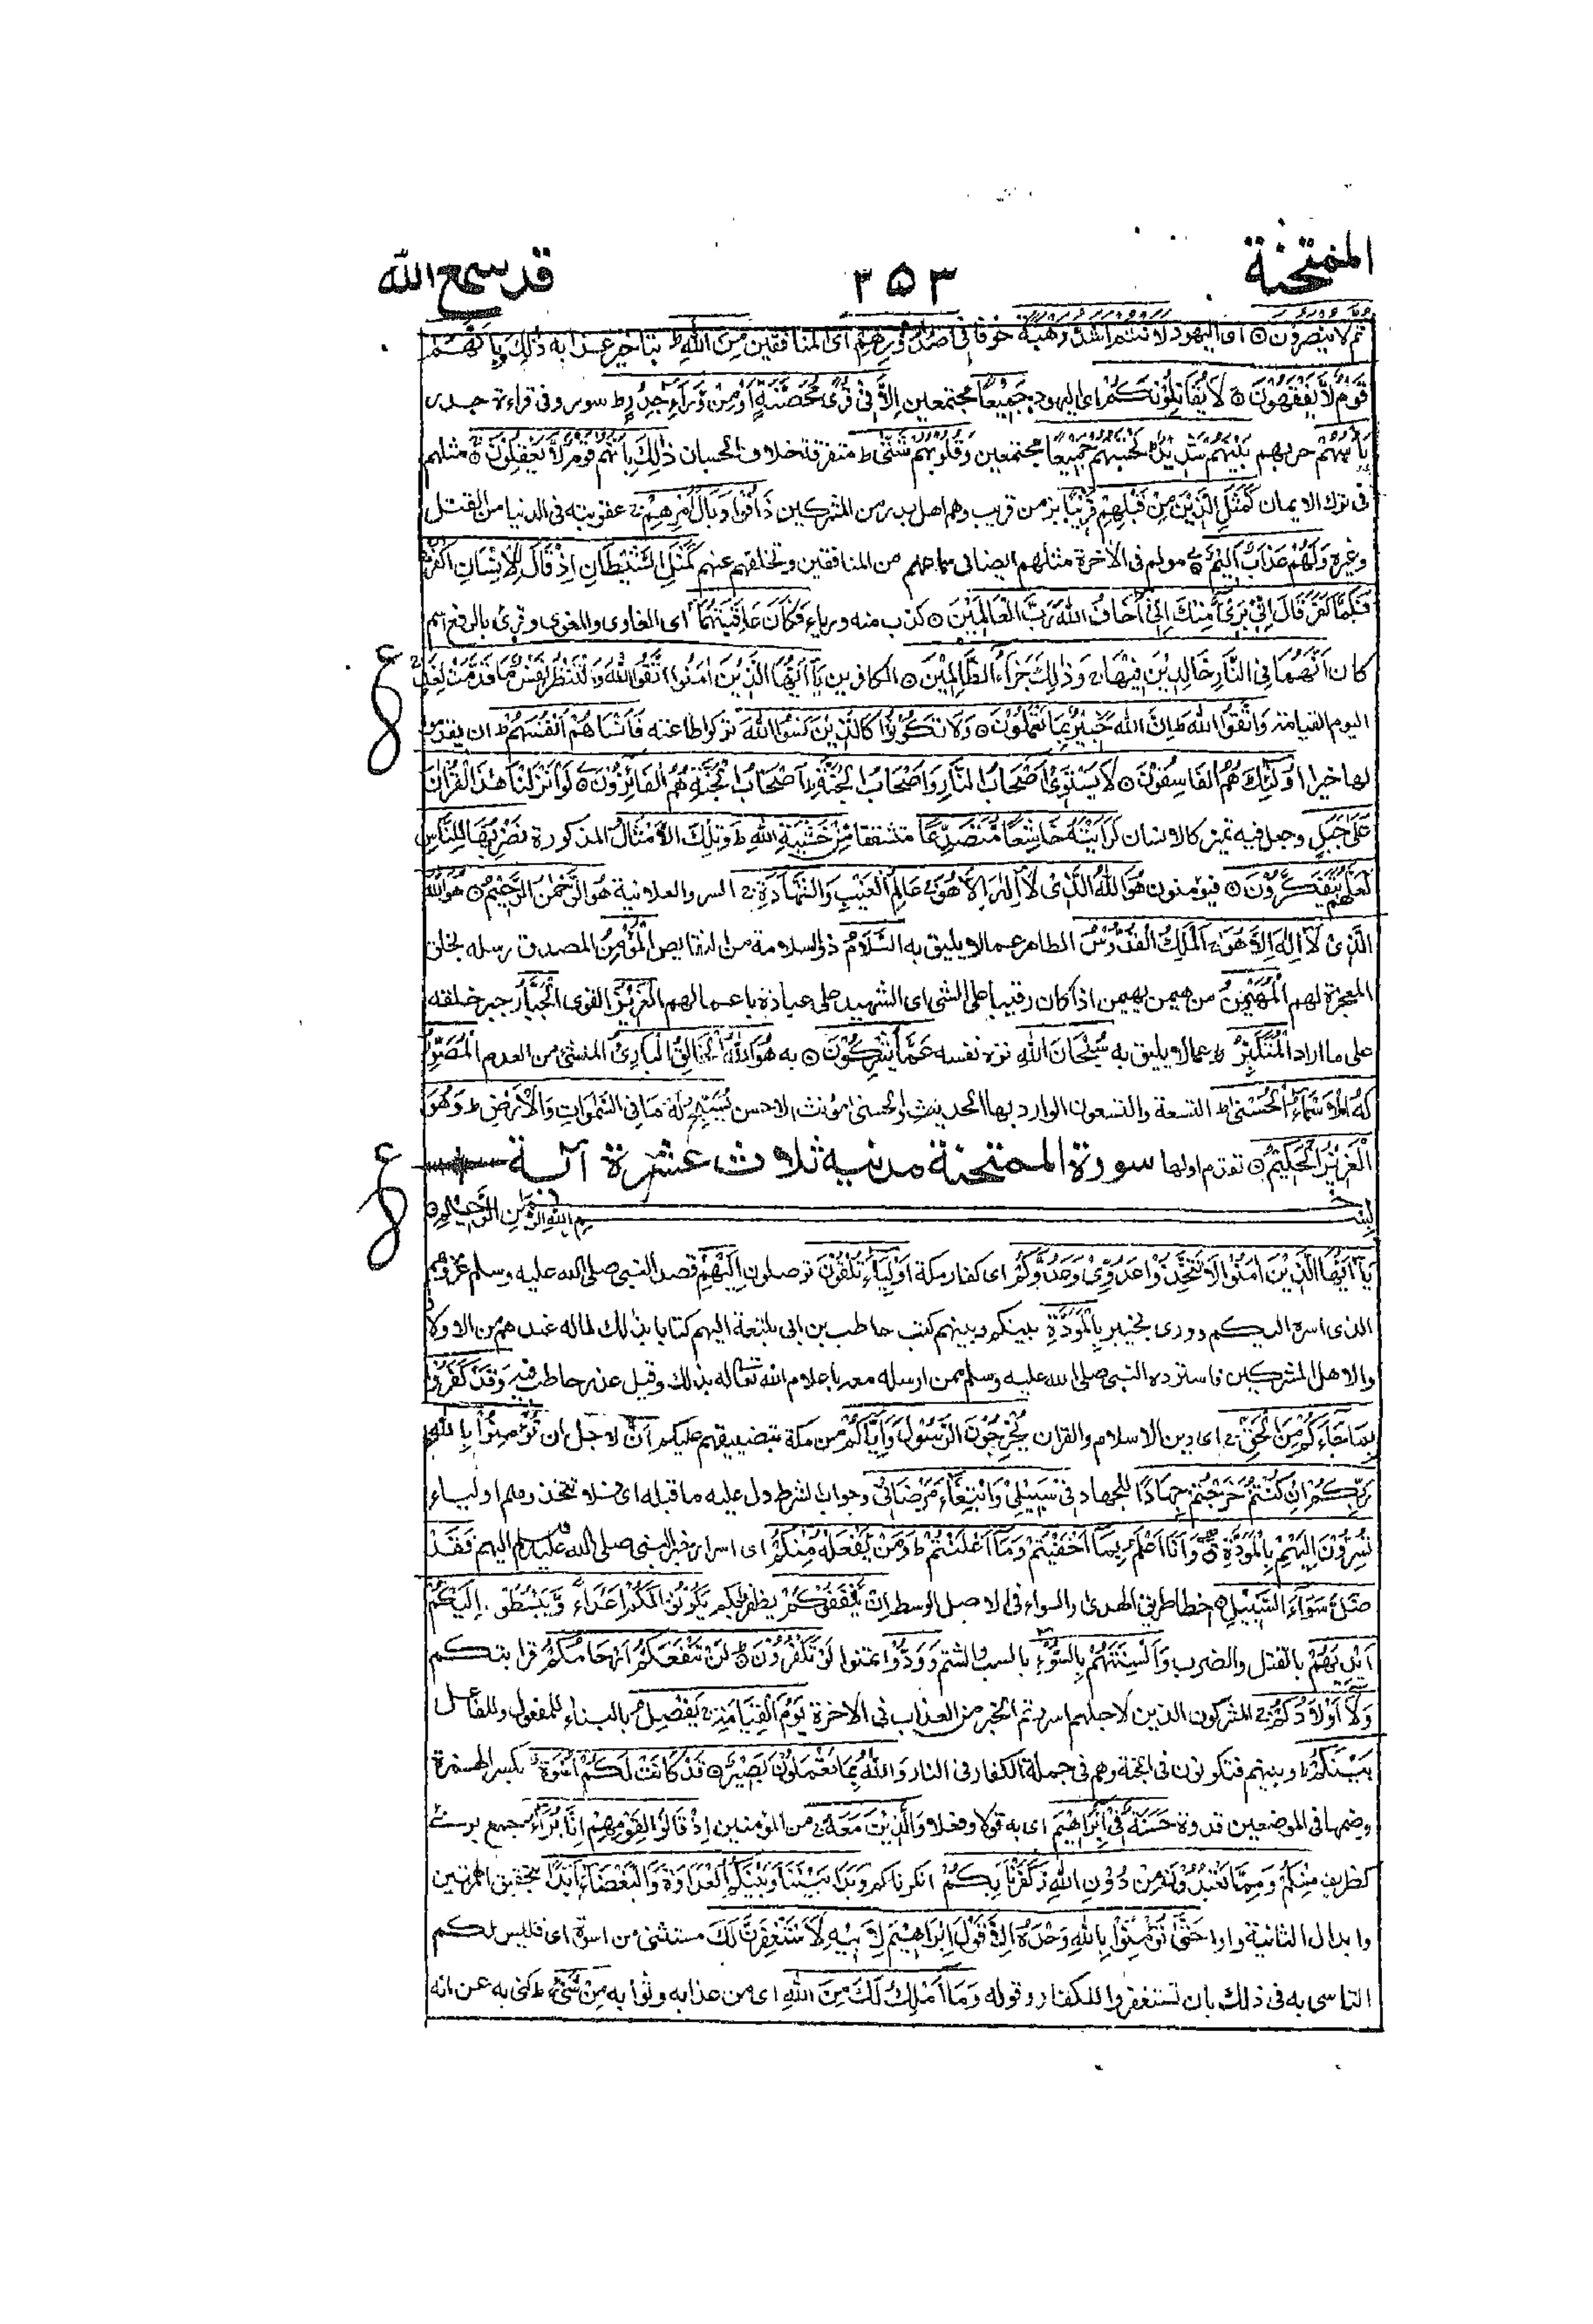 الممتحنة ٣٥٣ قد سمع الله
ثُمَّ لَا يُنْصَرُوْنَ ۝ اى اليهود لَاَنْتُمْ اَشَدُّ رَهْبَةً خوفا فِىْ صُدُوْرِهِمْ اى المنافقين مِنَ اللّٰهِ ط بتاخير عذابه ذٰلِكَ بِاَنَّهُمْ
قَوْمٌ لَّا يَفْقَهُوْنَ ۝ لَا يُقَاتِلُوْنَكُمْ اى اليهود جَمِيْعًا مجتمعين اِلَّا فِىْ قُرًى مُّحَصَّنَةٍ اَوْ مِنْ وَّرَاۤءِ جِدَارٍ ط سور وفى قراءة جدر
بَاْسُهُمْ حربهم بَيْنَهُمْ شَدِيْدٌ ط تَحْسَبُهُمْ جَمِيْعًا مجتمعين وَّقُلُوْبُهُمْ شَتّٰى ط متفرقة خلاف الحسبان ذٰلِكَ بِاَنَّهُمْ قَوْمٌ لَّا يَعْقِلُوْنَ ۝ مثلهم
فى ترك الايمان كَمَثَلِ الَّذِيْنَ مِنْ قَبْلِهِمْ قَرِيْبًا بزمن قريب وهم اهل بدر من المشركين ذَاقُوْا وَبَالَ اَمْرِهِمْ ج عقوبته فى الدنيا من القتل
وغيره وَلَهُمْ عَذَابٌ اَلِيْمٌ ج مولم فى الاخرة مثلهم ايضا فى سماعهم من المنافقين وتخلفهم عنهم كَمَثَلِ الشَّيْطَانِ اِذْ قَالَ لِلْاِنْسَانِ اكْفُرْ ج
فَلَمَّا كَفَرَ قَالَ اِنِّىْ بَرِىْءٌ مِّنْكَ اِنِّىْ اَخَافُ اللّٰهَ رَبَّ الْعَالَمِيْنَ ۝ كذب منه ورياء فَكَانَ عَاقِبَتَهُمَا اى الغاوى والمغوى وقرئ بالرفع اسم
كان اَنَّهُمَا فِى النَّارِ خَالِدَيْنِ فِيْهَا ط وَذٰلِكَ جَزَاۤءُ الظَّالِمِيْنَ ۝ الكافرين يٰۤاَيُّهَا الَّذِيْنَ اٰمَنُوا اتَّقُوا اللّٰهَ وَلْتَنْظُرْ نَفْسٌ مَّا قَدَّمَتْ لِغَدٍ ج
اليوم القيامة وَاتَّقُوا اللّٰهَ ط اِنَّ اللّٰهَ خَبِيْرٌۢ بِمَا تَعْمَلُوْنَ ۝ وَلَا تَكُوْنُوْا كَالَّذِيْنَ نَسُوا اللّٰهَ تركوا طاعته فَاَنْسَاهُمْ اَنْفُسَهُمْ ط ان يقدموا
لها خيرا اُولٰۤئِكَ هُمُ الْفَاسِقُوْنَ ۝ لَا يَسْتَوِىْۤ اَصْحَابُ النَّارِ وَاَصْحَابُ الْجَنَّةِ ط اَصْحَابُ الْجَنَّةِ هُمُ الْفَاۤئِزُوْنَ ۝ لَوْ اَنْزَلْنَا هٰذَا الْقُرْاٰنَ
عَلٰى جَبَلٍ وجعل فيه تميز كالانسان لَّرَاَيْتَهٗ خَاشِعًا مُّتَصَدِّعًا متشققا مِّنْ خَشْيَةِ اللّٰهِ ط وَتِلْكَ الْاَمْثَالُ المذكورة نَضْرِبُهَا لِلنَّاسِ
لَعَلَّهُمْ يَتَفَكَّرُوْنَ ۝ فيؤمنون هُوَ اللّٰهُ الَّذِىْ لَاۤ اِلٰهَ اِلَّا هُوَ ج عَالِمُ الْغَيْبِ وَالشَّهَادَةِ ج السر والعلانية هُوَ الرَّحْمٰنُ الرَّحِيْمُ ۝ هُوَ اللّٰهُ
الَّذِىْ لَاۤ اِلٰهَ اِلَّا هُوَ ج اَلْمَلِكُ الْقُدُّوْسُ الطاهر عما لا يليق به السَّلَامُ ذو السلامة من النقايص الْمُؤْمِنُ المصدق رسله بخلق
المعجزة لهم الْمُهَيْمِنُ من هيمن يهيمن اذا كان رقيبا على الشئ اى الشهيد على عباده باعمالهم الْعَزِيْزُ القوى الْجَبَّارُ جبر خلقه
على ما اراد الْمُتَكَبِّرُ ط عما لا يليق به سُبْحَانَ اللّٰهِ نزه نفسه عَمَّا يُشْرِكُوْنَ ۝ به هُوَ اللّٰهُ الْخَالِقُ الْبَارِئُ المنشئ من العدم الْمُصَوِّرُ
لَهُ الْاَسْمَاۤءُ الْحُسْنٰى ط التسعة والتسعون الوارد بها الحديث والحسنى مؤنث الاحسن يُسَبِّحُ لَهٗ مَا فِى السَّمٰوَاتِ وَالْاَرْضِ ط وَهُوَ
الْعَزِيْزُ الْحَكِيْمُ ۝ تقدم اولها سورة الممتحنة مدنية ثلاث عشرة آية
بِسْمِ اللّٰهِ الرَّحْمٰنِ الرَّحِيْمِ ۝
يٰۤاَيُّهَا الَّذِيْنَ اٰمَنُوْا لَا تَتَّخِذُوْا عَدُوِّىْ وَعَدُوَّكُمْ اى كفار مكة اَوْلِيَاۤءَ تُلْقُوْنَ توصلون اِلَيْهِمْ قصد النبى صلى الله عليه وسلم غزوهم
الذى اسره اليكم وورى بخيبر بِالْمَوَدَّةِ بينكم وبينهم كتب حاطب بن ابى بلتعة اليهم كتابا بذلك لما له عندهم من الاولاد
والاهل المشركين فاسترده النبى صلى الله عليه وسلم ممن ارسله معه باعلام الله تعالى له بذلك وقبل عذر حاطب فيه وَقَدْ كَفَرُوْا
بِمَا جَاۤءَكُمْ مِّنَ الْحَقِّ ج اى دين الاسلام والقران يُخْرِجُوْنَ الرَّسُوْلَ وَاِيَّاكُمْ من مكة بتضييقهم عليكم اَنْ لاجل ان تُؤْمِنُوْا بِاللّٰهِ
رَبِّكُمْ اِنْ كُنْتُمْ خَرَجْتُمْ جِهَادًا للجهاد فِىْ سَبِيْلِىْ وَابْتِغَاۤءَ مَرْضَاتِىْ وجواب الشرط دل عليه ما قبله اى فلا تتخذوهم اولياء
تُسِرُّوْنَ اِلَيْهِمْ بِالْمَوَدَّةِ وَاَنَا اَعْلَمُ بِمَاۤ اَخْفَيْتُمْ وَمَاۤ اَعْلَنْتُمْ ط وَمَنْ يَّفْعَلْهُ مِنْكُمْ اى اسرار خبر النبى صلى الله عليه وسلم اليهم فَقَدْ
ضَلَّ سَوَاۤءَ السَّبِيْلِ ۝ خطا طريق الهدى والسواء فى الاصل الوسط اِنْ يَّثْقَفُوْكُمْ يظفروا بكم يَكُوْنُوْا لَكُمْ اَعْدَاۤءً وَّيَبْسُطُوْۤا اِلَيْكُمْ
اَيْدِيَهُمْ بالقتل والضرب وَاَلْسِنَتَهُمْ بِالسُّوْۤءِ بالسب والشتم وَوَدُّوْا تمنوا لَوْ تَكْفُرُوْنَ ۝ لَنْ تَنْفَعَكُمْ اَرْحَامُكُمْ قرابتكم
وَلَاۤ اَوْلَادُكُمْ ج المشركون الذين لاجلهم اسررتم الخبر من العذاب فى الاخرة يَوْمَ الْقِيَامَةِ ج يَفْصِلُ بالبناء للمفعول وللفاعل
بَيْنَكُمْ ط وبينهم فتكونون فى الجنة وهم فى جملة الكفار فى النار وَاللّٰهُ بِمَا تَعْمَلُوْنَ بَصِيْرٌ ۝ قَدْ كَانَتْ لَكُمْ اُسْوَةٌ بكسر الهمزة
وضمها فى الموضعين قدوة حَسَنَةٌ فِىْۤ اِبْرَاهِيْمَ اى به قولا وفعلا وَالَّذِيْنَ مَعَهٗ ج من المؤمنين اِذْ قَالُوْا لِقَوْمِهِمْ اِنَّا بُرَءٰۤؤُا جمع برئ
كظريف مِنْكُمْ وَمِمَّا تَعْبُدُوْنَ مِنْ دُوْنِ اللّٰهِ ز كَفَرْنَا بِكُمْ انكرناكم وَبَدَا بَيْنَنَا وَبَيْنَكُمُ الْعَدَاوَةُ وَالْبَغْضَاۤءُ اَبَدًا بتحقيق الهمزتين
وابدال الثانية واوا حَتّٰى تُؤْمِنُوْا بِاللّٰهِ وَحْدَهٗۤ اِلَّا قَوْلَ اِبْرَاهِيْمَ لِاَبِيْهِ لَاَسْتَغْفِرَنَّ لَكَ مستثنى من اسوة اى فليس لكم
التاسى به فى ذلك بان تستغفروا للكفار وقوله وَمَاۤ اَمْلِكُ لَكَ مِنَ اللّٰهِ اى من عذابه وثوابه مِنْ شَىْءٍ ط كنى به عن انه
ع
ع